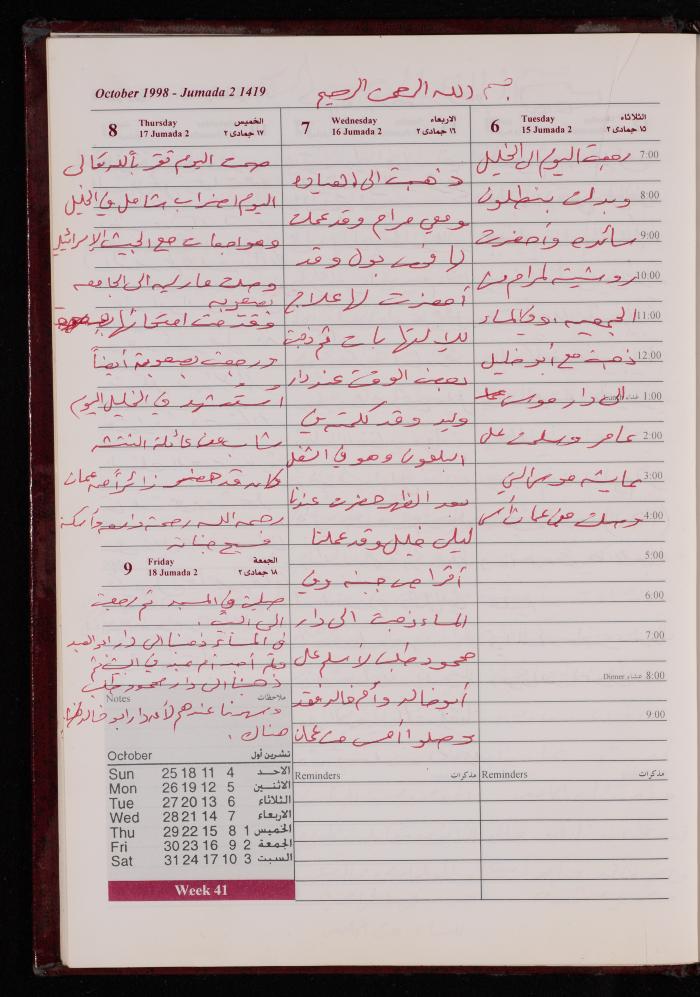 October 1998 - Jumada 2 1419
بسم الله الرحمن الرحيم
الثلاثاء
١٥ جمادى ٢
Tuesday
15 Jumada 2
6
7:00
رجعت اليوم الى الخليل
8:00
وبدلت بنطلون
9:00
سائده وأحضرت
10:00
روشيته لمرام من
11:00
الجمعيه وفي المساء
12:00
ذهبت مع أبو خليل
1:00
الى دار موسى
2:00
عامر وسلمت على
3:00
عايشه موسى التي
4:00
وصلت من عمان أمس
5:00
6:00
7:00
Dinner عشاء 8:00
9:00
Reminders مذكرات
الاربعاء
١٦ جمادى ٢
Wednesday
16 Jumada 2
7
ذهبت الى العياده
ومعي مرام وقد عملت
لها فحص بول وقد
أحضرت لها علاج
ثم ذهبت
بعض الوقت عند دار
وليد وقد كلمته من
التلفون وهو في الشغل
بعد الظهر حضرت عندنا
ليلى خليل وقد عملنا
أقراص جبنه وفي
المساء ذهبت الى دار
محمود طلب لأسلم على
أبو خالد وأم خالد فقد
وصلوا أمس من عمان
Reminders مذكرات
الخميس
١٧ جمادى ٢
Thursday
17 Jumada 2
8
صمت اليوم تقرباً لله تعالى
اليوم اضراب شامل في الخليل
ومواجهات مع الجيش الإسرائيلي
وصلت ماريه الى الجامعه
بصعوبه
فقدمت امتحانها
ورجعت بصعوبة أيضاً
أستشهد في الخليل اليوم
شاب من عائلة النتشه
كان قد حضر زائراً من عمان
رحمه الله رحمة واسعه وأسكنه
فسيح جناته
الجمعة
١٨ جمادى ٢
Friday
18 Jumada 2
9
صليت في المسجد ثم رجعت
الى البيت.
في المساء ذهبنا الى دار ابو العبد
ولم أجد أم عبد في البيت ثم
ذهبنا الى دار محمود طلب
Notes ملاحظات
وسهرنا عندهم لأن دار ابو خالد
هناك.
October تشرين أول
Sun 25 18 11 4 الاحـد
Mon 26 19 12 5 الاثنـين
Tue 27 20 13 6 الثلاثاء
Wed 28 21 14 7 الاربعاء
Thu 29 22 15 8 1 الخميس
Fri 30 23 16 9 2 الجمعة
Sat 31 24 17 10 3 السبت
Week 41